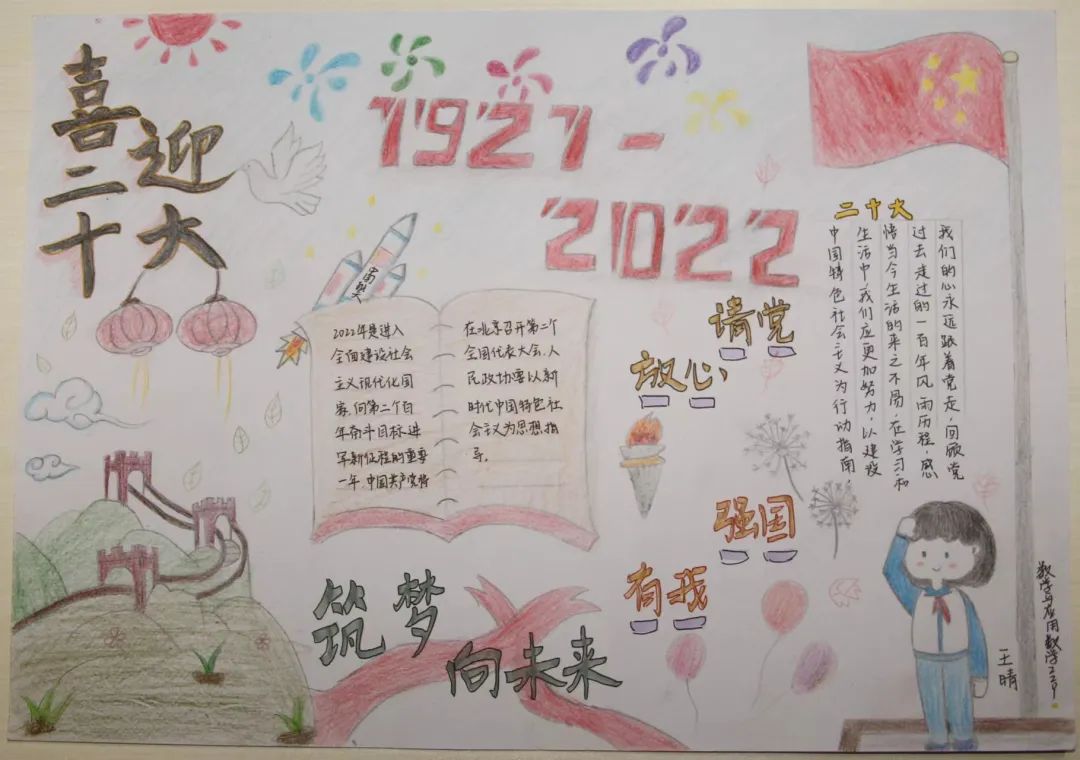 喜迎
二十大
1921-
2022
2022年是进入
全面建设社会
主义现代化国
家,向第二个百
年奋斗目标进
军新征程的重要
一年,中国共产党将
在北京召开第二个
全国代表大会,人
民政协要以新
时代中国特色社
会主义为思想指
导。
请党
放心,
强国
有我
二十大
我们的心永远跟着党走,回顾党
过去走过的一百年风雨历程,感
悟当今生活的来之不易,在学习和
生活中我们应更加努力,以建设
中国特色社会主义为行动指南.
筑梦
向未来
数学与应用数学
王晴